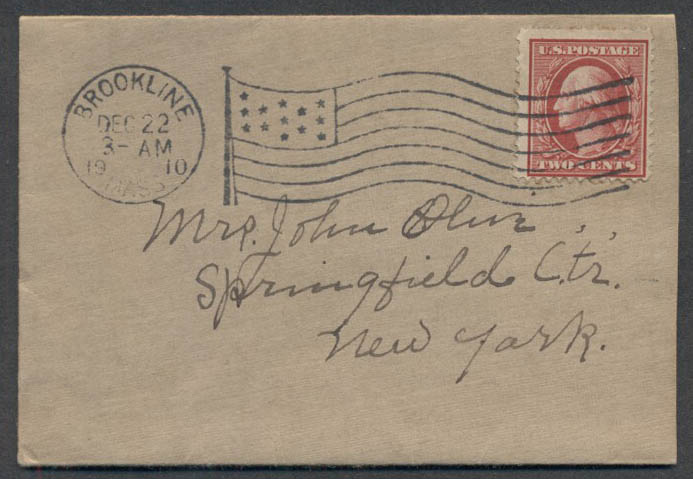 BROOKLINE
DEC 22
3- AM
19 10
MASS
U.S. POSTAGE
TWO CENTS
Mrs. John
Springfield Ctr.
New York.